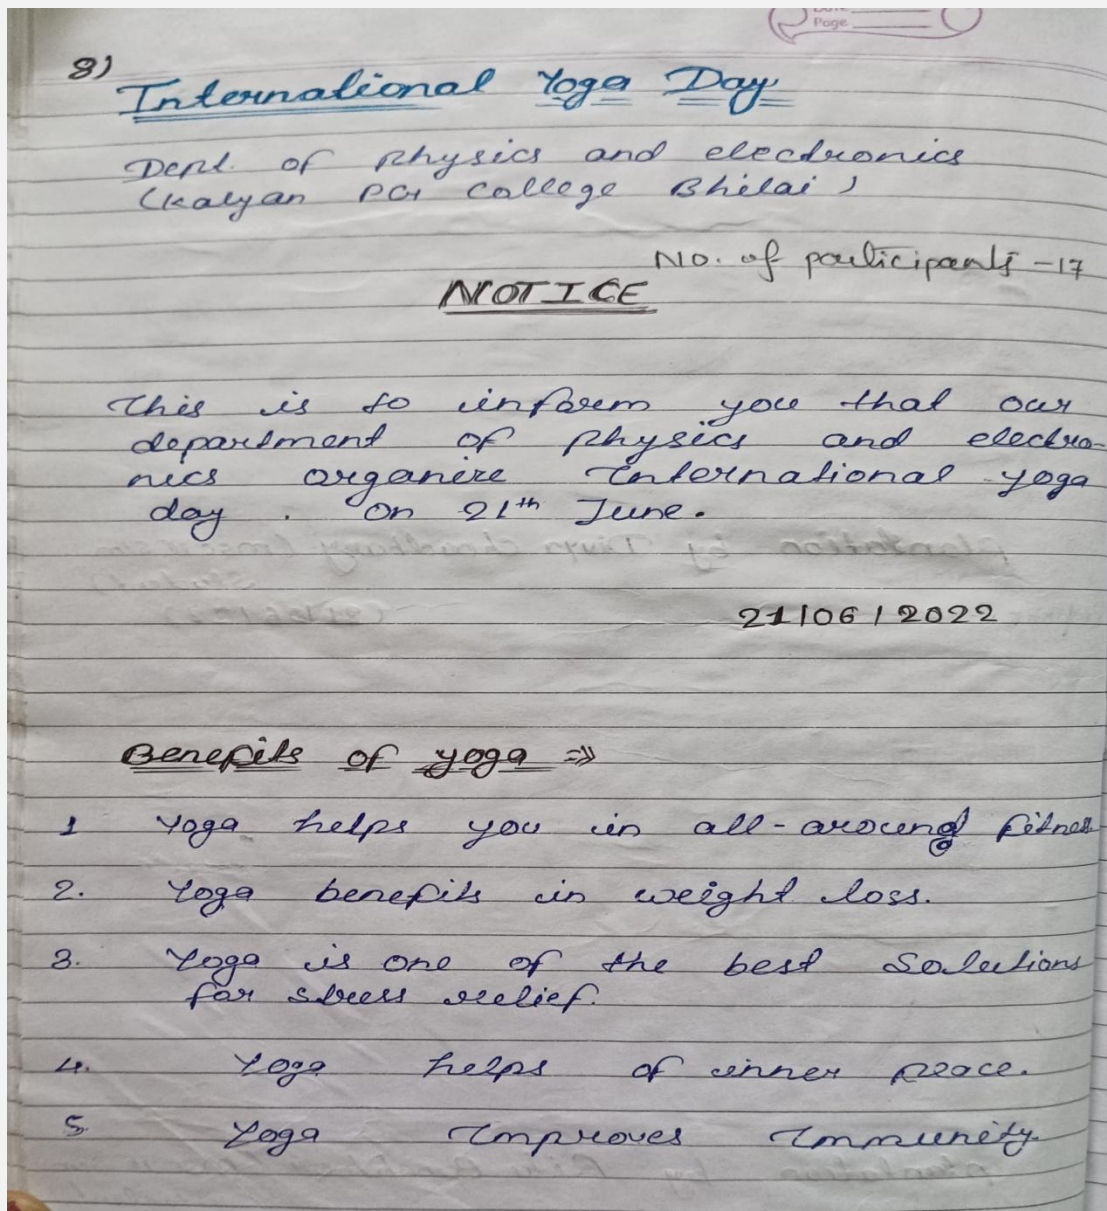 Page
8)
International Yoga Day
Dept. of Physics and electronics
(Kalyan PG College Bhilai)
No. of participants - 17
NOTICE
This is to inform you that our
department of physics and electro-
nics organize International yoga
day . On 21th June.
21/06/2022
Benefits of yoga ⇒
1 Yoga helps you in all-around fitness
2. Yoga benefits in weight loss.
3. Yoga is one of the best Solutions
for stress relief.
4. Yoga helps of inner peace.
5. Yoga Improves Immunity